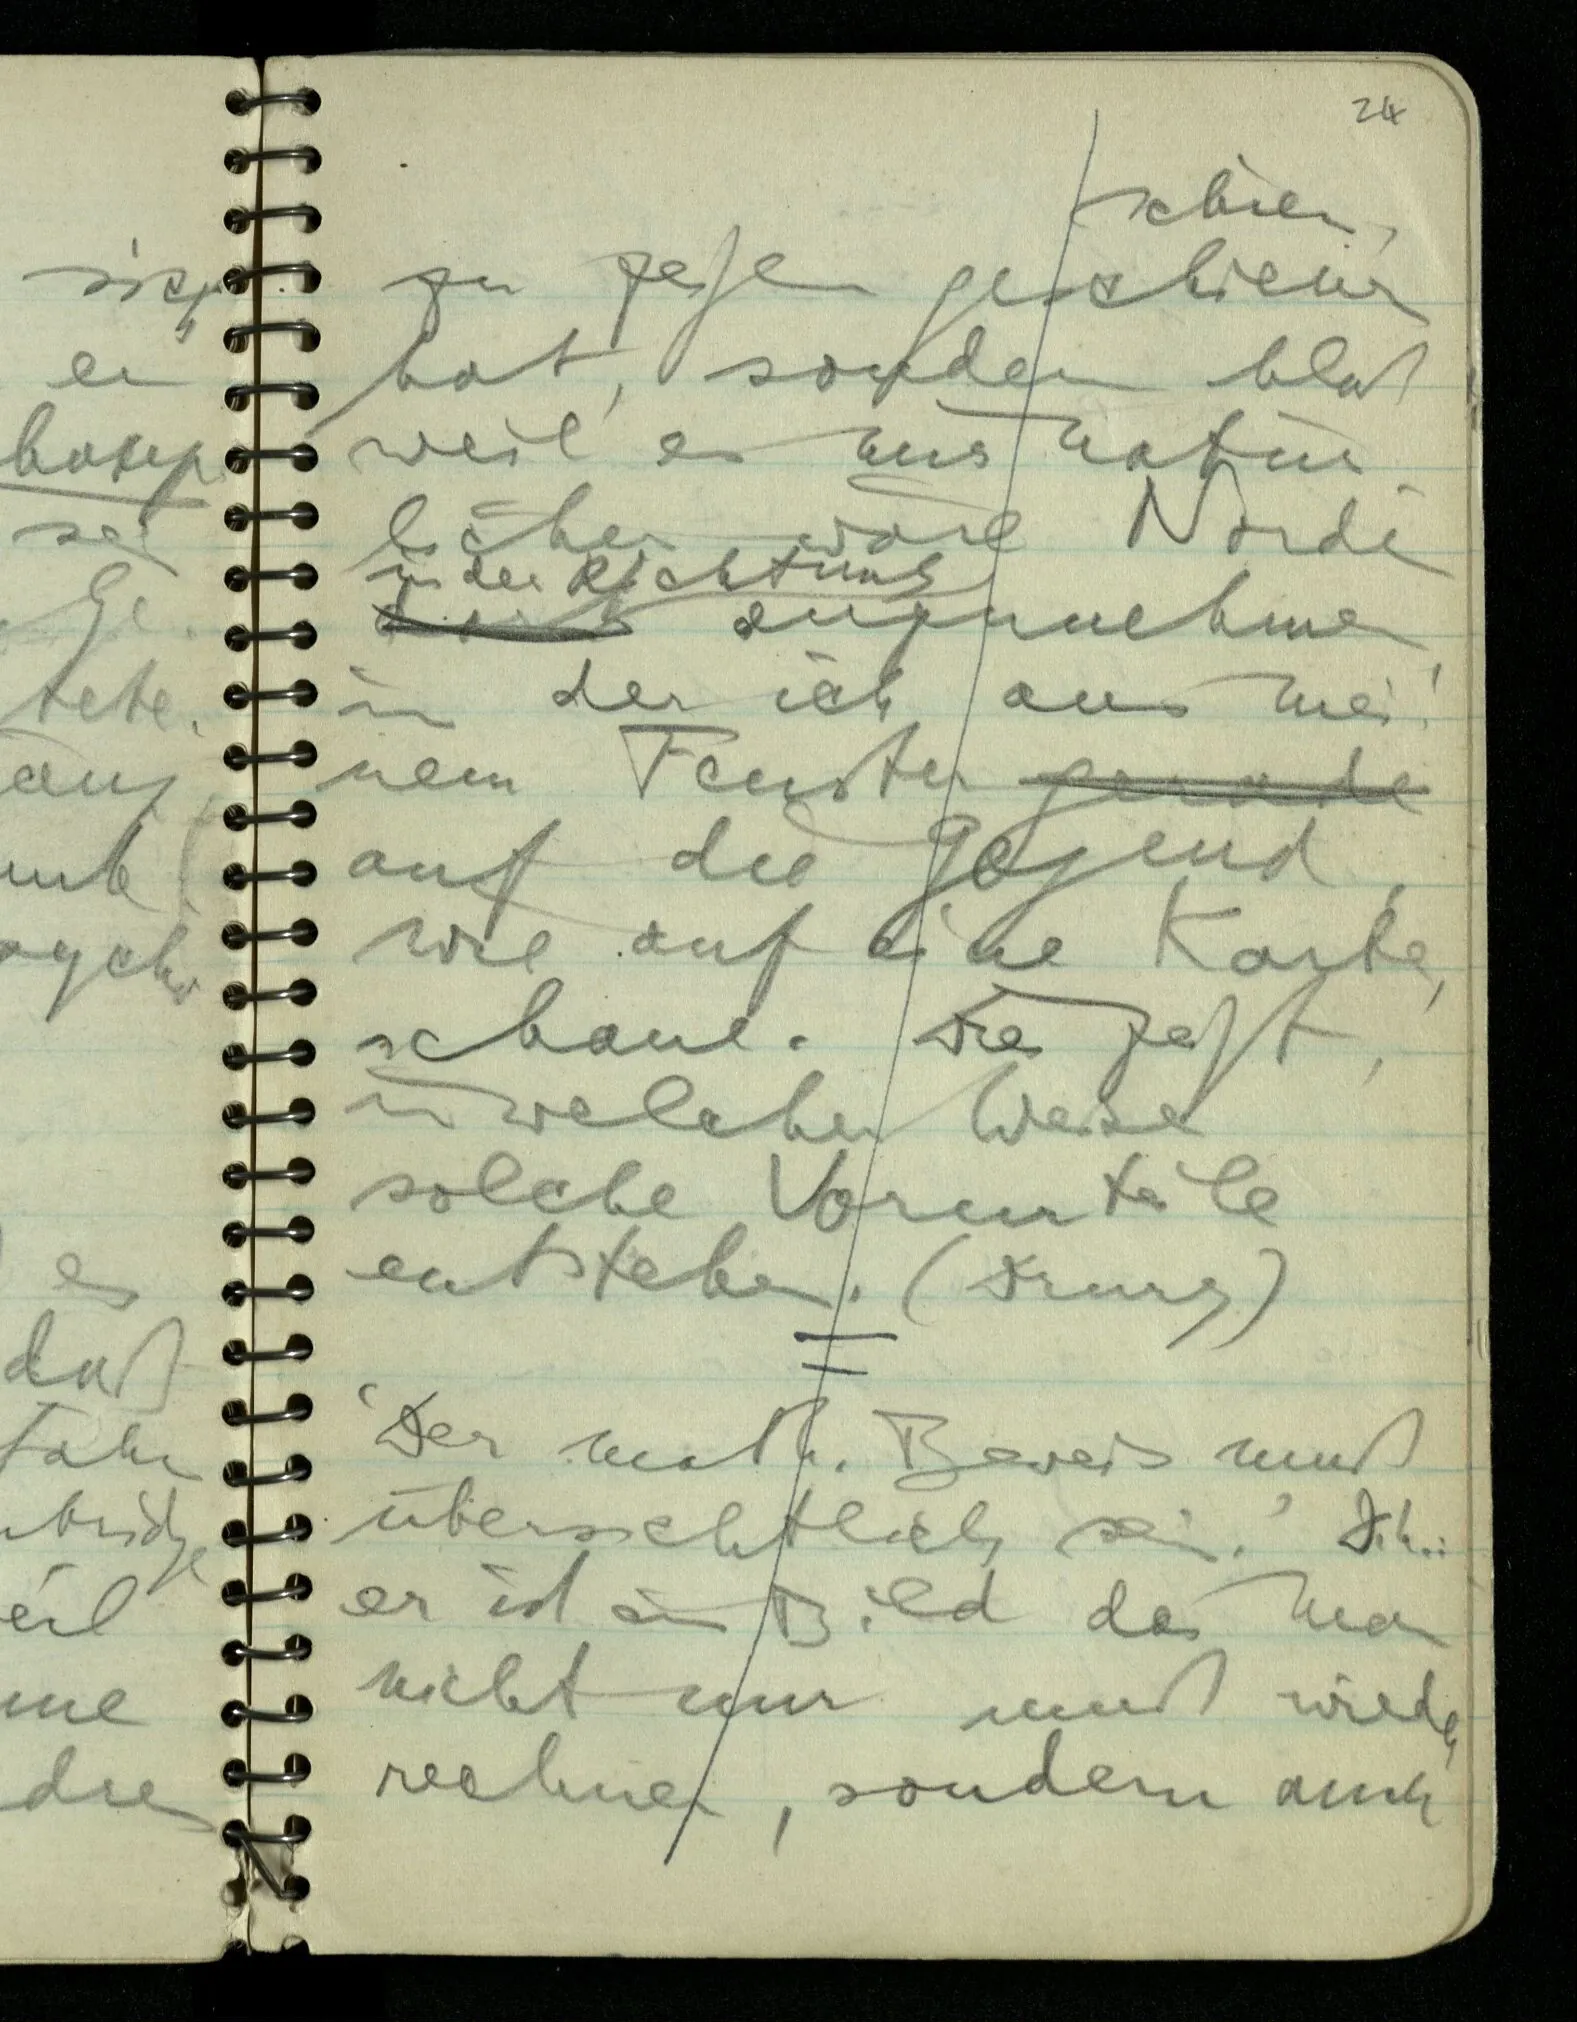 24
schien,
zu zeigen geschienen
hat, sondern bloß
weil es uns natür
licher wäre Nord
in der Richtung
anzunehmen,
in der ich aus mei
nem Fenster gerade
auf die Gegend,
wie auf eine Karte,
schaue. Dies zeigt,
in welcher Weise
solche Vorurteile
entstehen. (Drury)
'Der math. Beweis muß
übersichtlich sein.' D.h.:
er ist ein Bild das man
nicht nur muß wieder
rechnen, sondern auch
er
sei
Ge
tete.
es
daß
eil
me
die